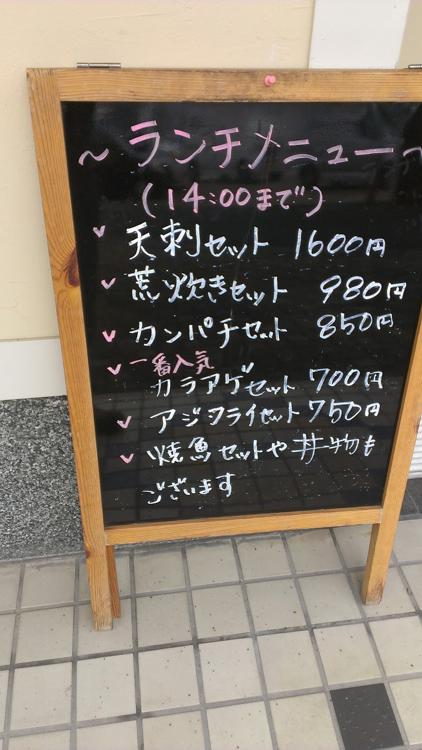 ～ランチメニュー～
(14:00まで)
天刺セット 1600円
荒炊きセット 980円
カンパチセット 850円
一番人気
カラアゲセット 700円
アジフライセット 750円
焼魚セットや丼物も
ございます